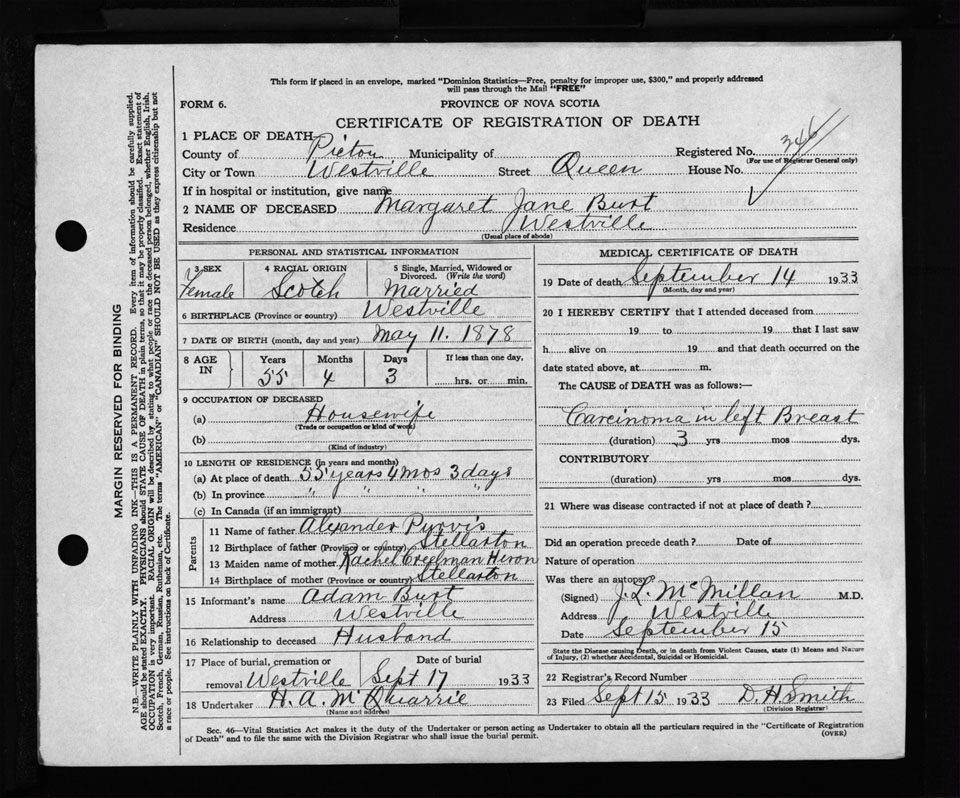 This form if placed in an envelope, marked "Dominion Statistics—Free, penalty for improper use, $300," and properly addressed
will pass through the Mail "FREE"
FORM 6. PROVINCE OF NOVA SCOTIA
CERTIFICATE OF REGISTRATION OF DEATH
1 PLACE OF DEATH
County of Pictou Municipality of Registered No. 346
(For use of Registrar General only)
City or Town Westville Street Queen House No.
If in hospital or institution, give name
2 NAME OF DECEASED Margaret Jane Burt
Residence Westville
(Usual place of abode)
PERSONAL AND STATISTICAL INFORMATION
3 SEX 4 RACIAL ORIGIN 5 Single, Married, Widowed or Divorced. (Write the word)
Female Scotch Married
6 BIRTHPLACE (Province or country) Westville
7 DATE OF BIRTH (month, day and year) May 11. 1878
8 AGE IN Years Months Days If less than one day,
55 4 3 hrs. or min.
9 OCCUPATION OF DECEASED
(a) Housewife
(Trade or occupation or kind of work)
(b)
(Kind of industry)
10 LENGTH OF RESIDENCE (in years and months)
(a) At place of death 55 years 4 mos 3 days
(b) In province " " " "
(c) In Canada (if an immigrant)
Parents
11 Name of father Alexander Purvis
12 Birthplace of father (Province or country) Stellarton
13 Maiden name of mother Rachel Creelman Heron
14 Birthplace of mother (Province or country) Stellarton
15 Informant's name Adam Burt
Address Westville
16 Relationship to deceased Husband
17 Place of burial, cremation or Date of burial
removal Westville Sept 17 1933
18 Undertaker H. A. McQuarrie
(Name and address)
MEDICAL CERTIFICATE OF DEATH
19 Date of death September 14 1933
(Month, day and year)
20 I HEREBY CERTIFY that I attended deceased from
19 to 19 that I last saw
h alive on 19 and that death occurred on the
date stated above, at m.
The CAUSE of DEATH was as follows:—
Carcinoma in left Breast
(duration) 3 yrs mos dys.
CONTRIBUTORY
(duration) yrs. mos. dys.
21 Where was disease contracted if not at place of death?
Did an operation precede death? Date of
Nature of operation
Was there an autopsy?
(Signed) J. L. McMillan M.D.
Address Westville
Date September 15
State the Disease causing Death, or in death from Violent Causes, state (1) Means and Nature
of Injury, (2) whether Accidental, Suicidal or Homicidal.
22 Registrar's Record Number
23 Filed Sept 15 1933 D. H. Smith
(Division Registrar)
Sec. 46—Vital Statistics Act makes it the duty of the Undertaker or person acting as Undertaker to obtain all the particulars required in the "Certificate of Registration
of Death" and to file the same with the Division Registrar who shall issue the burial permit. (OVER)
MARGIN RESERVED FOR BINDING
N.B.—WRITE PLAINLY WITH UNFADING INK—THIS IS A PERMANENT RECORD. Every item of information should be carefully supplied.
AGE should be stated EXACTLY. PHYSICIANS should STATE CAUSE OF DEATH in plain terms, so that it may be properly classified. Exact statement of
OCCUPATION is very important. RACIAL ORIGIN will be described by stating to what people or race the deceased person belonged, whether English, Irish,
Scotch, French, German, Russian, Ruthenian, etc. The terms "AMERICAN" or "CANADIAN" SHOULD NOT BE USED as they express citizenship but not
a race or people. See instructions on back of Certificate.